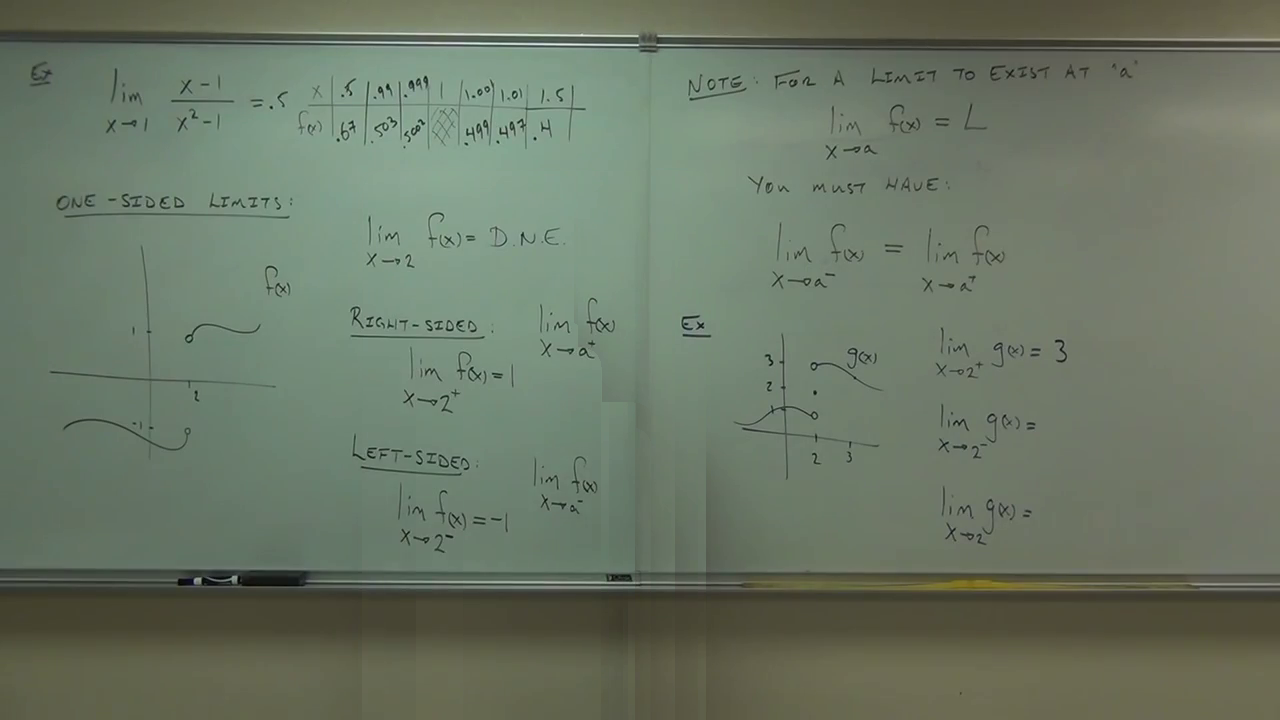 Ex lim x→1 x-1/x²-1 = .5
x .5 .99 .999 1 1.001 1.01 1.5
f(x) .67 .503 .5002 .499 .497 .4
ONE-SIDED LIMITS:
f(x)
1
2
-1
lim x→2 f(x) = D.N.E.
RIGHT-SIDED: lim x→a⁺ f(x)
lim x→2⁺ f(x) = 1
LEFT-SIDED: lim x→a⁻ f(x)
lim x→2⁻ f(x) = -1
NOTE: FOR A LIMIT TO EXIST AT "a"
lim x→a f(x) = L
YOU MUST HAVE:
lim x→a⁻ f(x) = lim x→a⁺ f(x)
Ex
3 g(x)
2
1
2 3
lim x→2⁺ g(x) = 3
lim x→2⁻ g(x) =
lim x→2 g(x) =